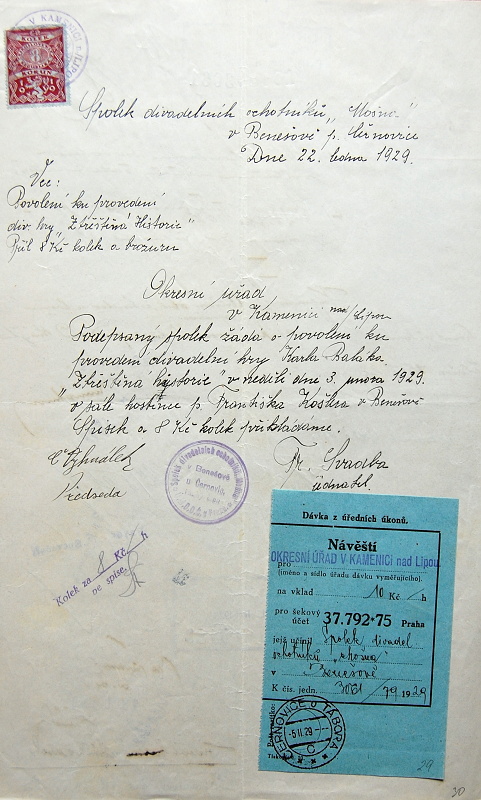 KOLEK
8
KORUN
V KAMENICI n. LIPOU
Spolek divadelních ochotníků „Mošna"
v Benešově p. Černovice
Dne 22. ledna 1929.
Věc:
Povolení ku provedení
div. hry „Ztřeštěná Historie"
Příl 8 Kč kolek a brožuru
Okresní úřad
v Kamenici nad/Lipou
Podepsaný spolek žádá o povolení ku
provedení divadelní hry Karla Baláka
„Ztřeštěna hystorie" v neděli dne 3. února 1929.
v sále hostince p. Františka Koštka v Benešově
Spisek a 8 Kč kolek přikládáme.
Předseda
Fr. Svadba
jednatel.
Spolek divadelních ochotníků
v Benešově
p. Černovice
Kolek za 8 Kč h
na spise.
Dávka z úředních úkonů.
Návěští
OKRESNÍ ÚŘAD V KAMENICI nad Lipou
pro
(jméno a sídlo úřadu dávku vyměřujícího)
na vklad 10 Kč h
pro šekový
účet 37.792+75 Praha
jejž učinil Spolek divadel
ochotníků „Mošna"
v Benešově
K čís. jedn. 3081/79 1929
ČERNOVICE U TÁBORA
-5.II.29
C
29
30